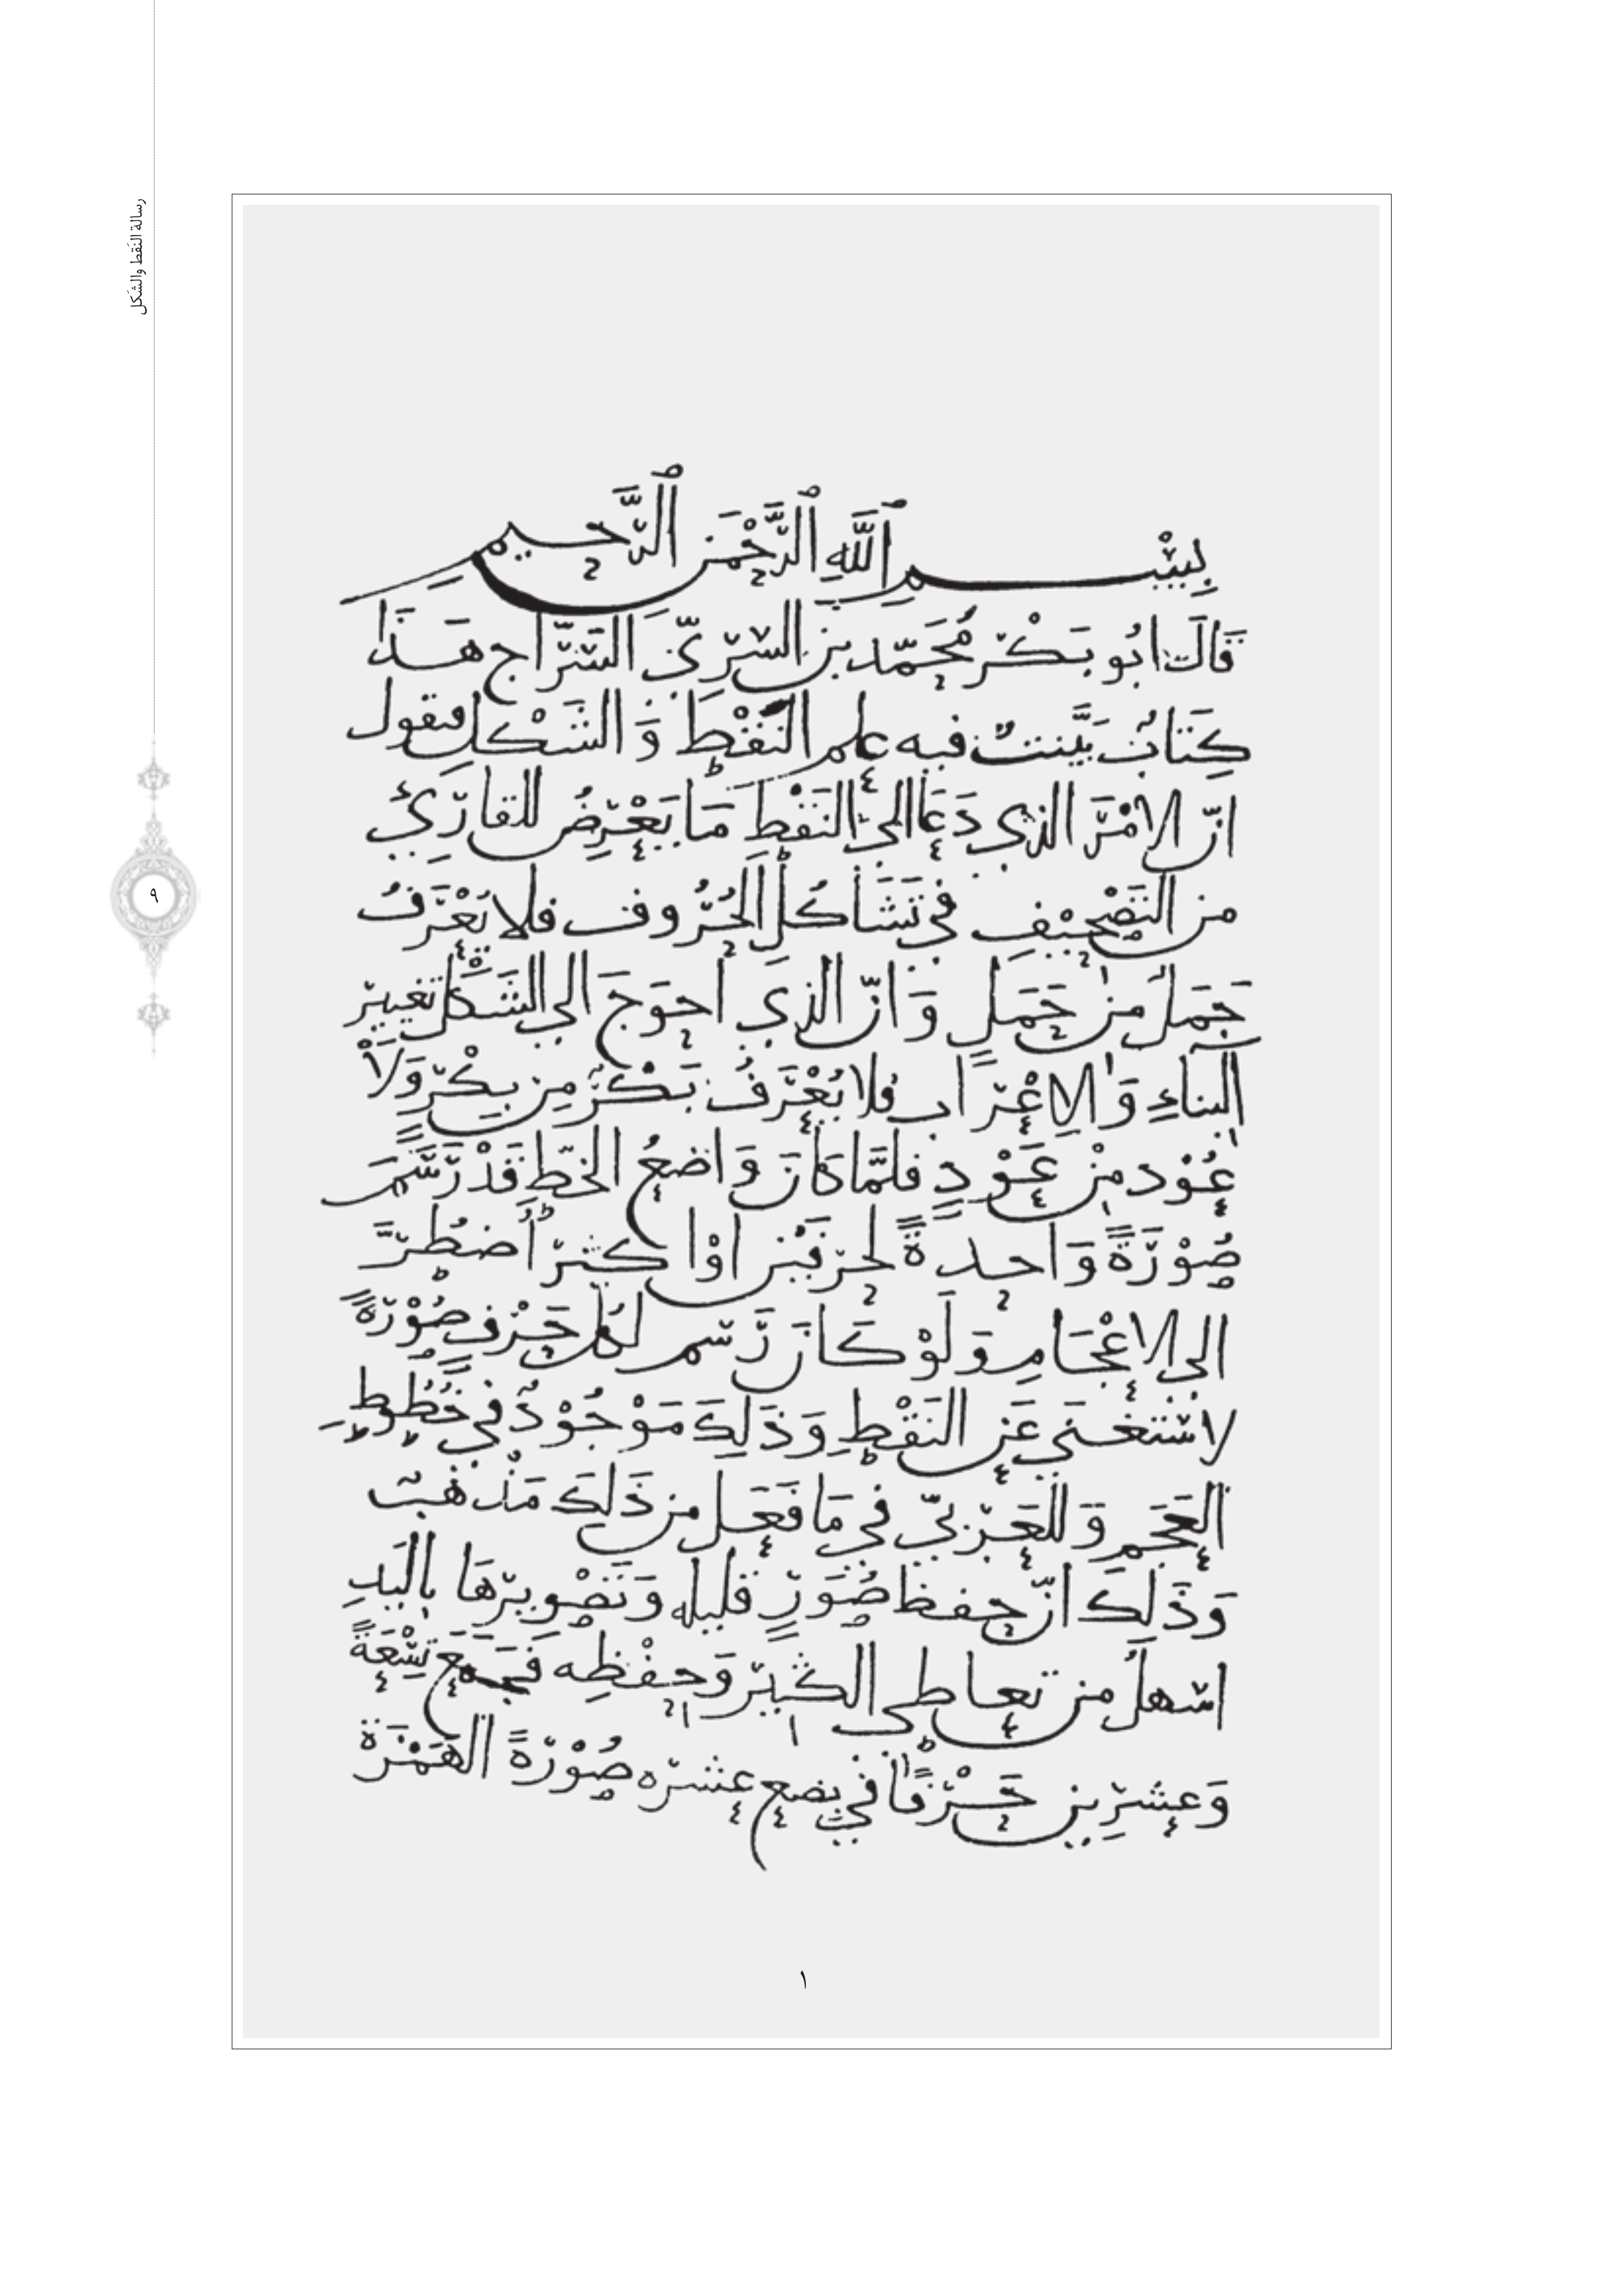 رسالة النَقط والشَكل
٩
بِسْمِ ٱللَّهِ ٱلرَّحْمَنِ ٱلرَّحِيمِ
قَالَ ابُو بَكْر مُحَمّد بن السّرِيّ السَّرّاج هَذَا
كِتَابٌ بَيَّنتُ فيه علم النَقْطِ وَ الشَكْلِ فنقول
انّ الامْرَ الذي دَعَا الىَ النَقْطِ مَا يَعْرِضُ للقارِئِ
من التَصْحِيْفِ في تَشَاكُلِ الحُرُوف فلا يُعْرَفُ
جَمَلٌ مِنْ حَمَلٍ وَ انّ الذي احوَجَ الي الشَكْلِ تغيير
البناءِ وَالاعْرَاب فلا يُعْرَفُ بَكْرٌ مِن بِكْرٍ وَلَا
عُوْد مِنْ عَوْدٍ فلمَّا كَانَ وَاضعُ الخَطّ قَدْ رَسَمَ
صُوْرَةً وَاحدةً لحرفَيْنِ اوْ اكثرَ اُضطُرَّ
الى الاعْجَامِ وَلَوْ كَانَ رَسَم لكُلِّ حَرْفٍ صُوْرَةً
لاسْتَغْنَي عَنِ النَقْطِ وَذَلِكَ مَوْجُوْدٌ في خُطُوطِ
العَجَمِ وَ للعَرَبيّ في مَا فَعَل من ذَلكَ مَذْهَبٌ
وَذَلكَ انّ حفظ صُوَرٍ قليله وَتَصْويرَهَا بِاليَدِ
اسْهلُ من تعاطي الكثيرِ وَحِفْظِه فَجَمَعَ تِسْعَةً
وَعِشْرِين حَرْفًا في بضع عشره صُوْرَةً الهَمْزَة
١